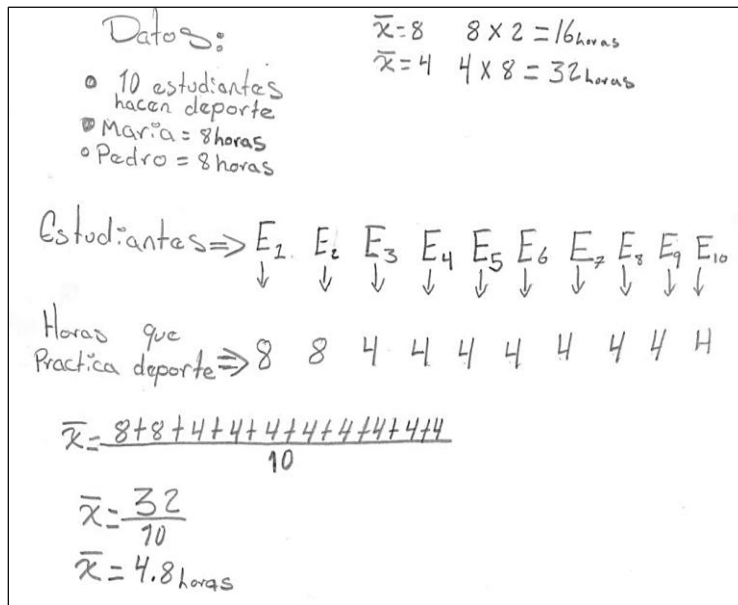 Datos:
x̄=8 8 x 2 = 16 horas
x̄=4 4 x 8 = 32 horas
10 estudiantes
hacen deporte
Maria = 8 horas
Pedro = 8 horas
Estudiantes => E1 E2 E3 E4 E5 E6 E7 E8 E9 E10
↓ ↓ ↓ ↓ ↓ ↓ ↓ ↓ ↓ ↓
Horas que
Practica deporte => 8 8 4 4 4 4 4 4 4 4
x̄ = 8+8+4+4+4+4+4+4+4+4
10
x̄ = 32
10
x̄ = 4.8 horas